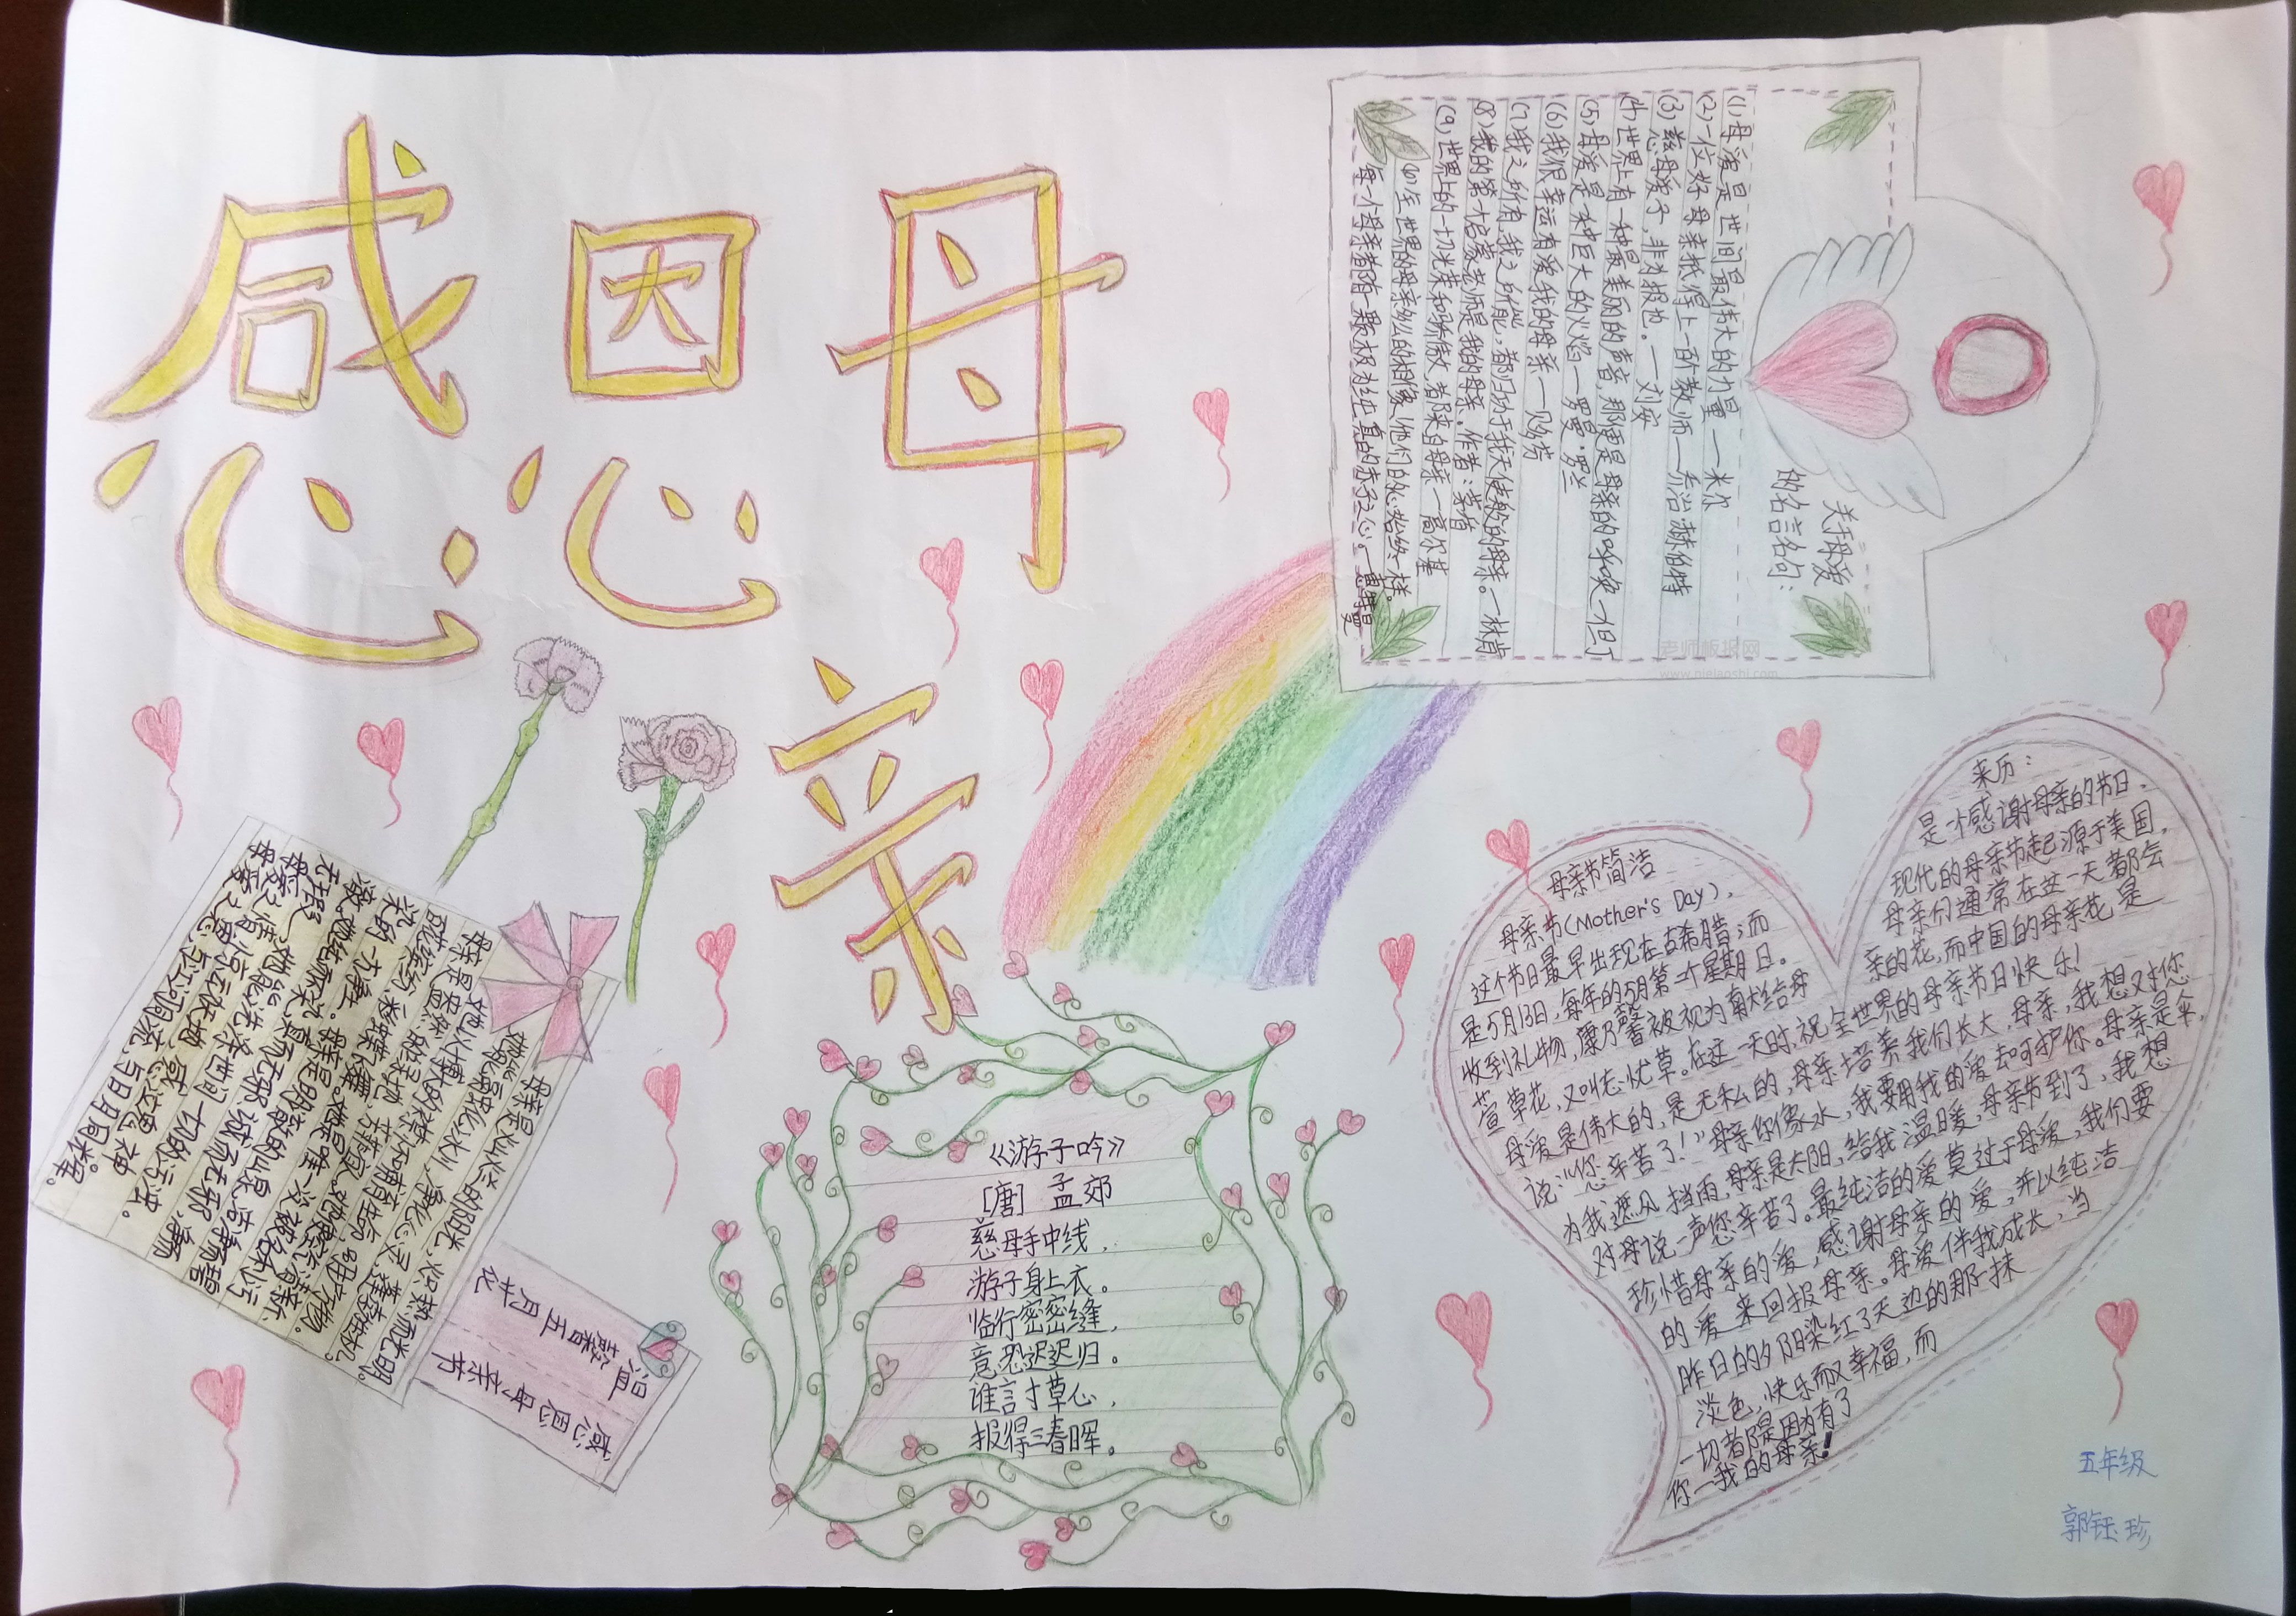 感恩母
亲
关于母爱
的名言名句：
(1)母爱是世间最伟大的力量 一米尔
(2)一位好母亲抵得上一百个教师一乔治赫伯特
(3)慈母爱子，非为报也。一刘安
(4)世界上有一种最美丽的声音，那便是母亲的呼唤一但丁
(5)母爱是一种巨大的火焰一罗曼·罗兰
(6)我很幸运有爱我的母亲一贝多芬
(7)我之所有，我之所能，都归功于我天使般的母亲。一林肯
(8)我的第一个启蒙老师是我的母亲。作者：茅盾
(9)世界上的一切光荣和骄傲，都来自母亲一高尔基
(10)全世界的母亲多么的相像！他们的心始终一样。
每一个母亲都有一颗极为纯真的赤子之心。一惠特曼
老师板报网
母亲节简洁
母亲节（Mother's Day），
这个节日最早出现在古希腊；而
是5月13日，每年的5月第二个星期日。
收到礼物，康乃馨被视为献给母
萱草花，又叫忘忧草。在这一天时，祝全世界的母亲节日快乐！
母爱是伟大的，是无私的，母亲培养我们长大，母亲，我想对您
说：“您辛苦了！”母亲你像水，我要用我的爱去呵护你。母亲是伞，
为我遮风挡雨，母亲是太阳，给我温暖，母亲节到了，我想
对母说一声您辛苦了。最纯洁的爱莫过于母爱，我们要
珍惜母亲的爱，感谢母亲的爱，并以纯洁
的爱来回报母亲。母爱伴我成长，当
昨日的夕阳染红了天边的那一抹
淡色，快乐而又幸福，而
一切都是因为有了
你一我的母亲！
来历：
是一个感谢母亲的节日，
现代的母亲节起源于美国，
母亲们通常在这一天都会
亲的花，而中国的母亲花是
《游子吟》
[唐] 孟郊
慈母手中线，
游子身上衣。
临行密密缝，
意恐迟迟归。
谁言寸草心，
报得三春晖。
母亲是炎炎的阳光，炽热而光明。
她能融化冰川，净化心灵，
感恩母亲节
温馨五月花
五年级
郭钰珍